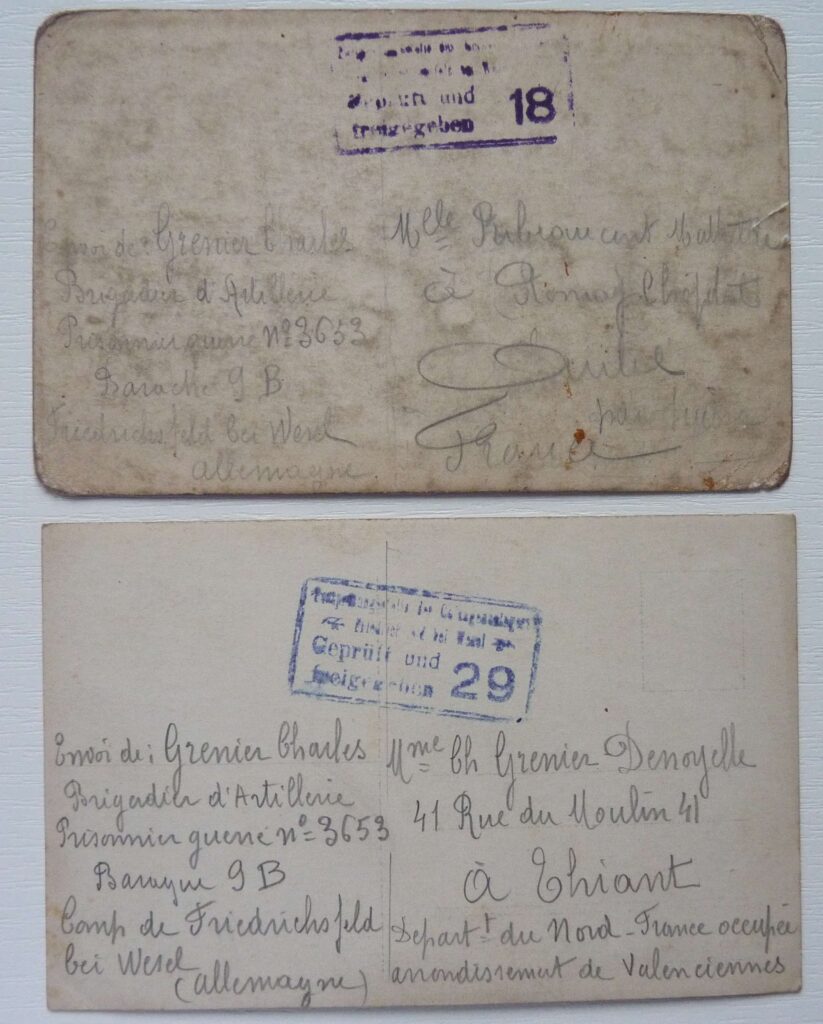 Geprüft und
freigegeben 18
Envoi de: Grenier Charles
Brigadier d'Artillerie
Prisonnier guerre nº 3653
Barache 9 B
Friedrichsfeld bei Wesel
allemagne
Melle
à
France
bei Wesel
Geprüft und
freigegeben 29
Envoi de: Grenier Charles
Brigadier d'Artillerie
Prisonnier guerre nº 3653
Baraque 9 B
Camp de Friedrichsfeld
bei Wesel
(allemagne)
Mme Ch Grenier Denoyelle
41 Rue du Moulin 41
à Thiant
Depart.t du Nord - France occupée
arrondissement de Valenciennes